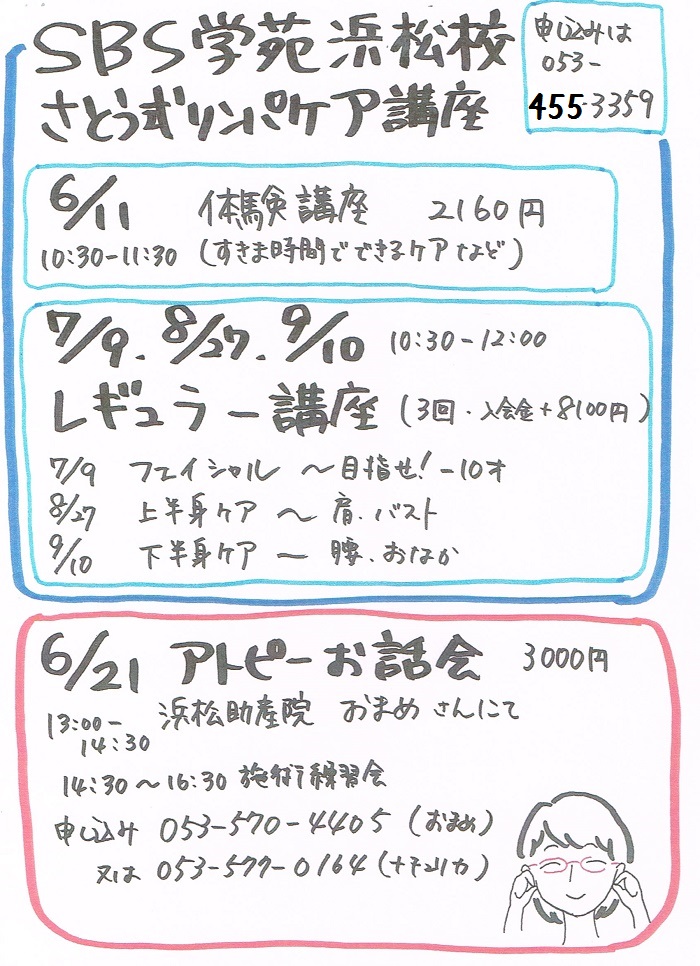 SBS学苑浜松校
さとう式リンパケア講座
申し込みは
053-
455-3359
6/11 体験講座 2160円
10:30-11:30 (すきま時間でできるケアなど)
7/9. 8/27. 9/10 10:30-12:00
レギュラー講座 (3回・入会金+8100円)
7/9 フェイシャル 〜目指せ!-10才
8/27 上半身ケア 〜 肩.バスト
9/10 下半身ケア 〜 腰.おなか
6/21 アトピーお話会 3000円
13:00-
14:30
浜松助産院 おまめさんにて
14:30〜16:30 施術練習会
申し込み 053-570-4405 (おまめ)
又は 053-577-0164